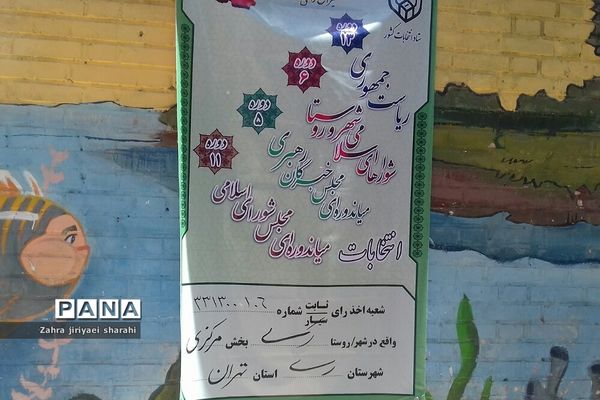 ستاد انتخابات کشور
دوره ۱۳
ریاست جمهوری
دوره ۶
شوراهای اسلامی شهر و روستا
دوره ۵
میاندوره‌ای مجلس خبرگان رهبری
دوره ۱۱
میاندوره‌ای مجلس شورای اسلامی
انتخابات
شعبه اخذ رای ثابت سیار شماره ۳۳۱۳۰۰۱۰۶
واقع در شهر/روستا ری بخش مرکزی
شهرستان ری استان تهران
PANA
Zahra jiriyaei sharahi